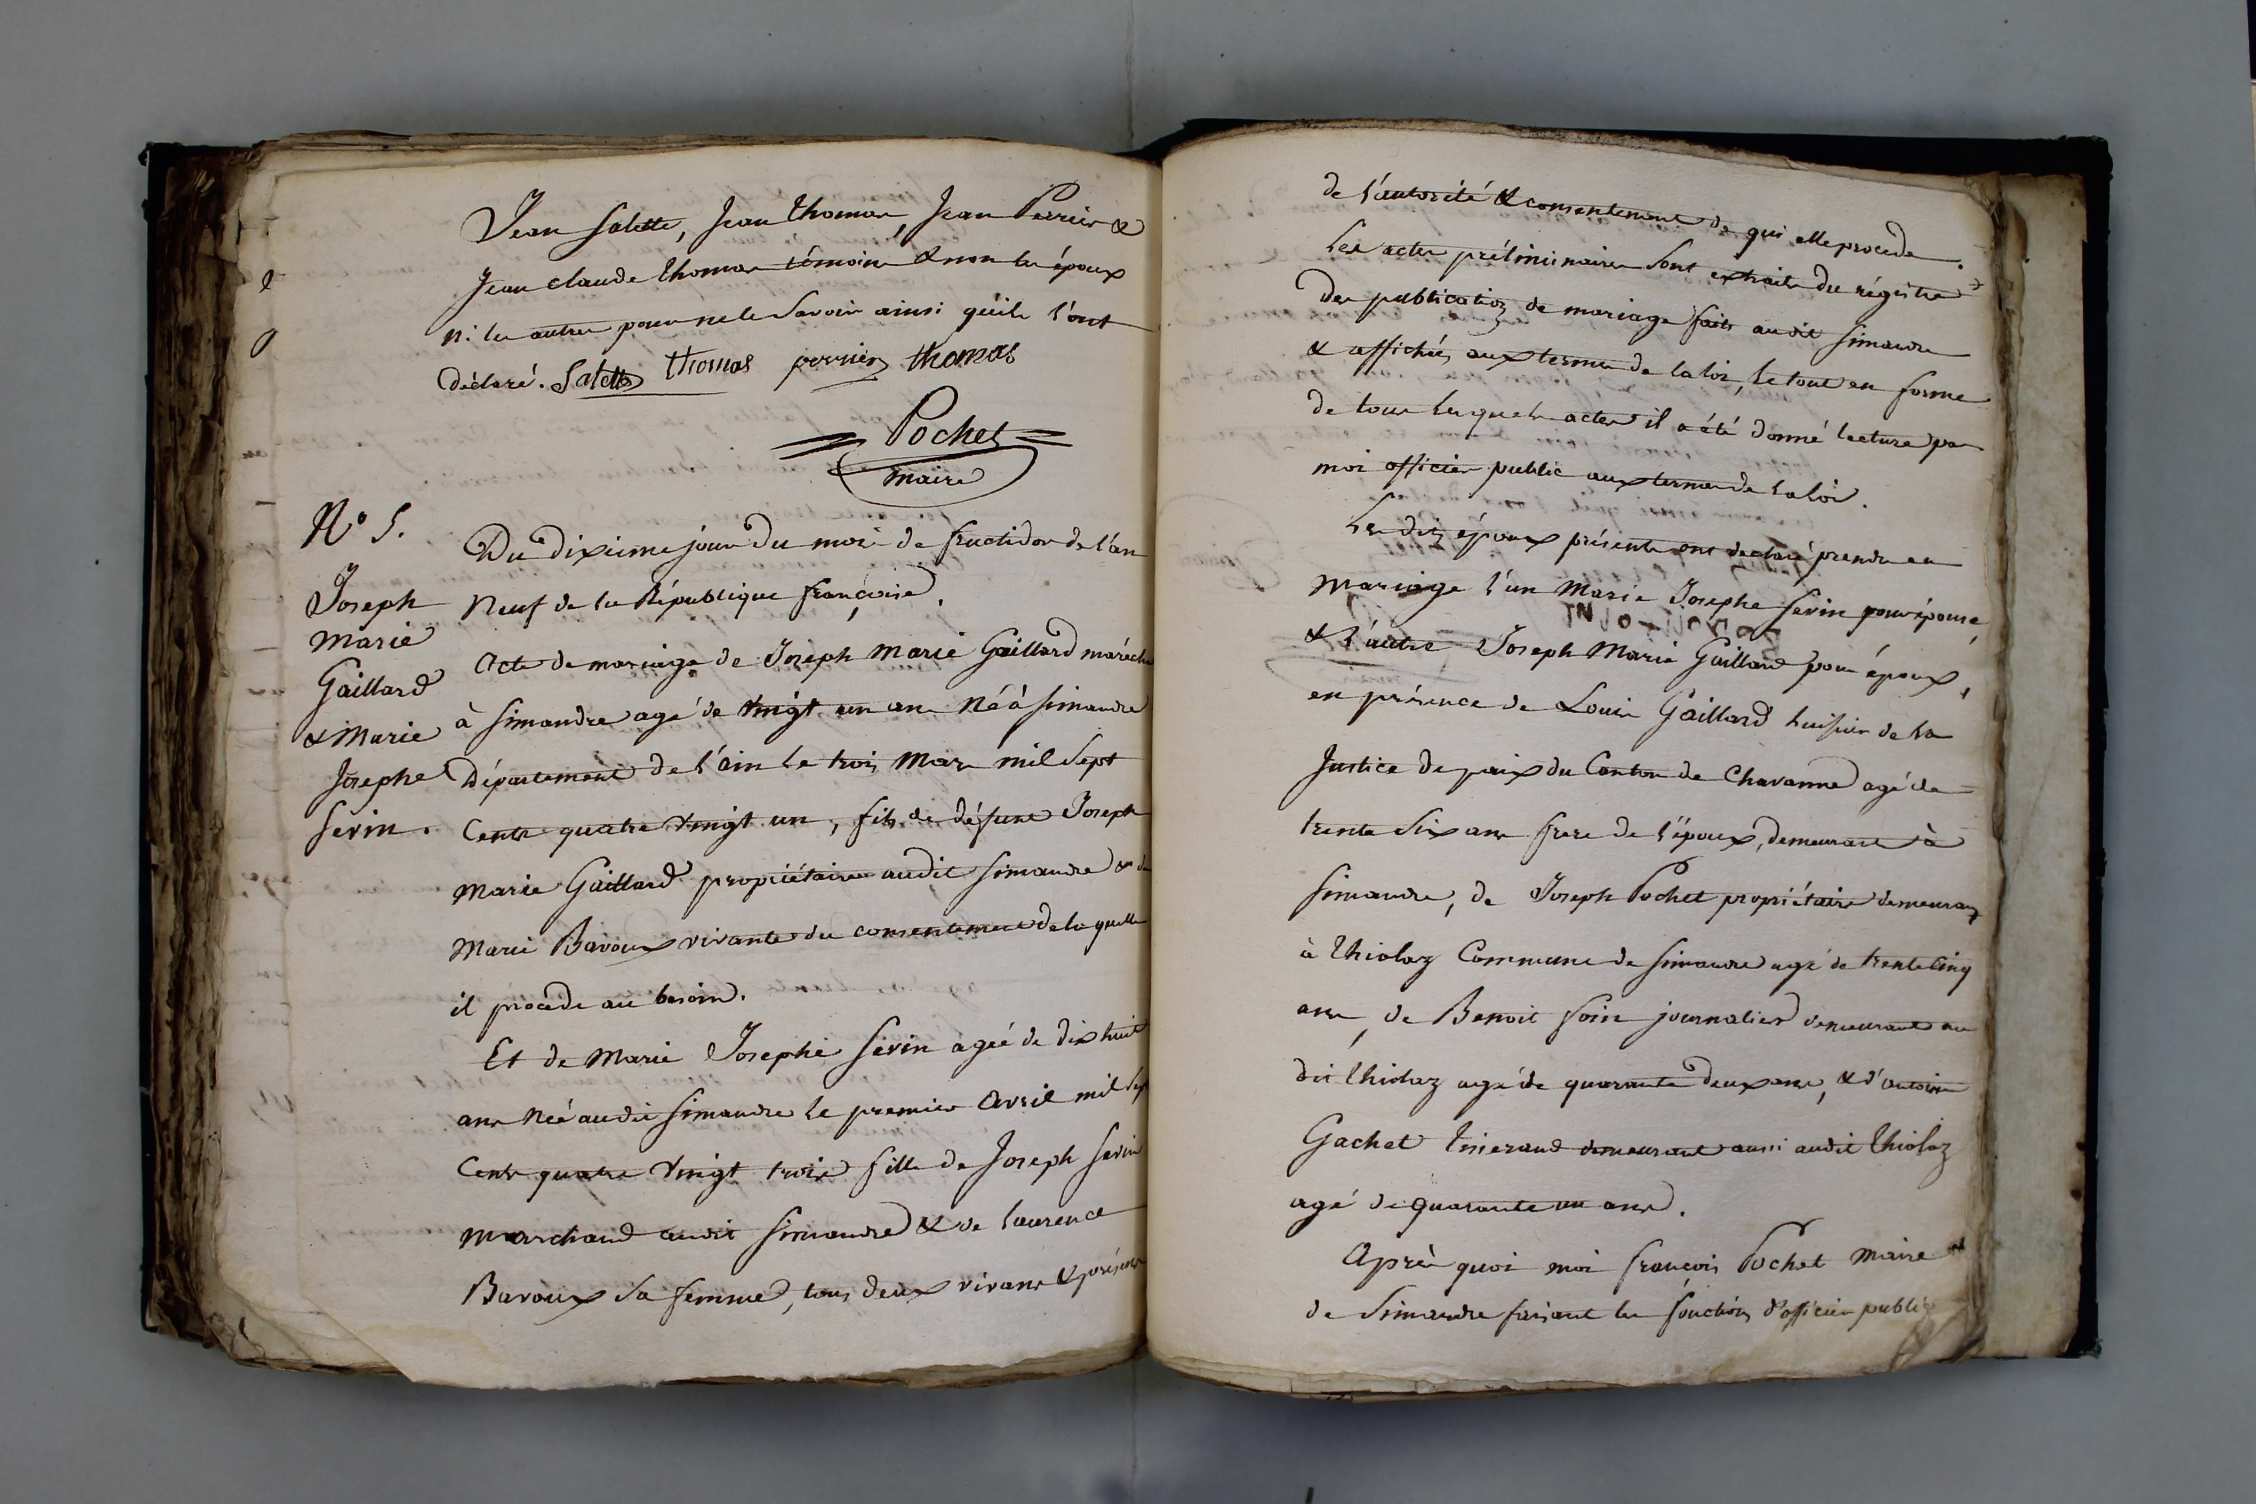 Jean Salette, Jean thomas, Jean Perrier &
Jean claude thomas témoins & non les époux
ni les autres pour ne le Savoir ainsi qu'ils l'ont
déclaré. Salette thomas perrier thomas
Pochet
maire
N° 5.
Joseph
Marie
Gaillard
& Marie
Josephe
Serin.
Du dixieme jour du mois de fructidor de l'an
Neuf de la République françoise.
Acte de mariage de Joseph Marie Gaillard maréchal
à Simandre agé de vingt un ans Né à Simandre
département de l'ain le trois Mars mil Sept
Cents quatre vingt un, fils de défunt Joseph
Marie Gaillard propriétaire audit Simandre & de
Marie Bavoux vivante du consentement de laquelle
il procede au besoin.
Et de Marie Josephe Serin agée de dix huit
ans Née audit Simandre le premier avril mil Sept
Cents quatre vingt trois fille de Joseph Serin
Marchand audit Simandre & de Laurence
Bavoux Sa femme, tous deux vivans & présens
de l'autorité & consentement de qui elle procede.
Les actes préliminaires Sont extraits du régistre
des publications de mariage faits audit Simandre
& affichés aux termes de la loi, le tout en forme
de tous lesquels actes il a été donné lecture par
moi officier public aux termes de la loi.
Les dits époux présents ont declaré prendre en
Mariage l'un Marie Josephe Serin pour épouse,
& l'autre Joseph Marie Gaillard pour époux,
en présence de Louis Gaillard huissier de la
Justice de paix du Canton de Chavanne agé de
trente Six ans frere de l'époux, demeurant à
Simandre, de Joseph Pochet propriétaire demeurant
à thiolaz Commune de Simandre agé de trente Cinq
ans, de Benoit Soin journalier demeurant au
dit thiolaz agé de quarante deux ans, & d'antoine
Gachet tisserand demeurant aussi audit thiolaz
agé de quarante un ans.
Après quoi moi françois Pochet Maire
de Simandre faisant les fonctions d'officier public